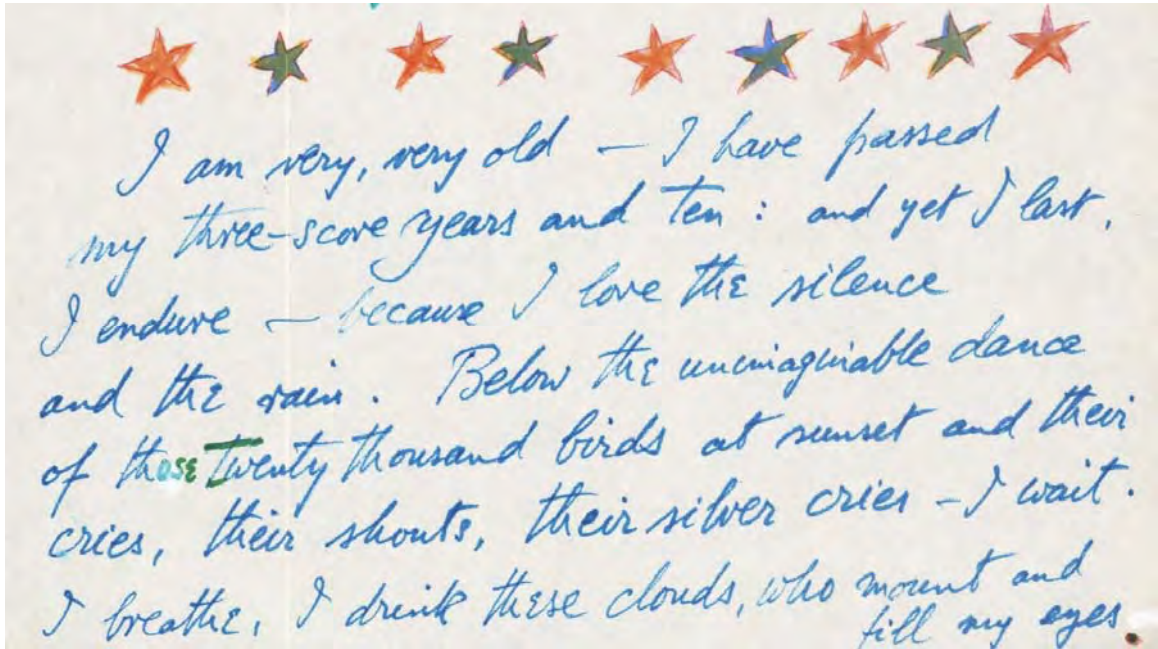 I am very, very old — I have passed
my three-score years and ten : and yet I last,
I endure — because I love the silence
and the rain. Below the unimaginable dance
of those twenty thousand birds at sunset and their
cries, their shouts, their silver cries — I wait.
I breathe, I drink these clouds, who mount and
fill my eyes